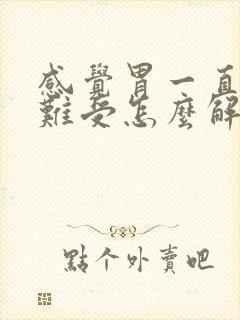 感覺胃一直
難受怎麼解
點个外賣吧